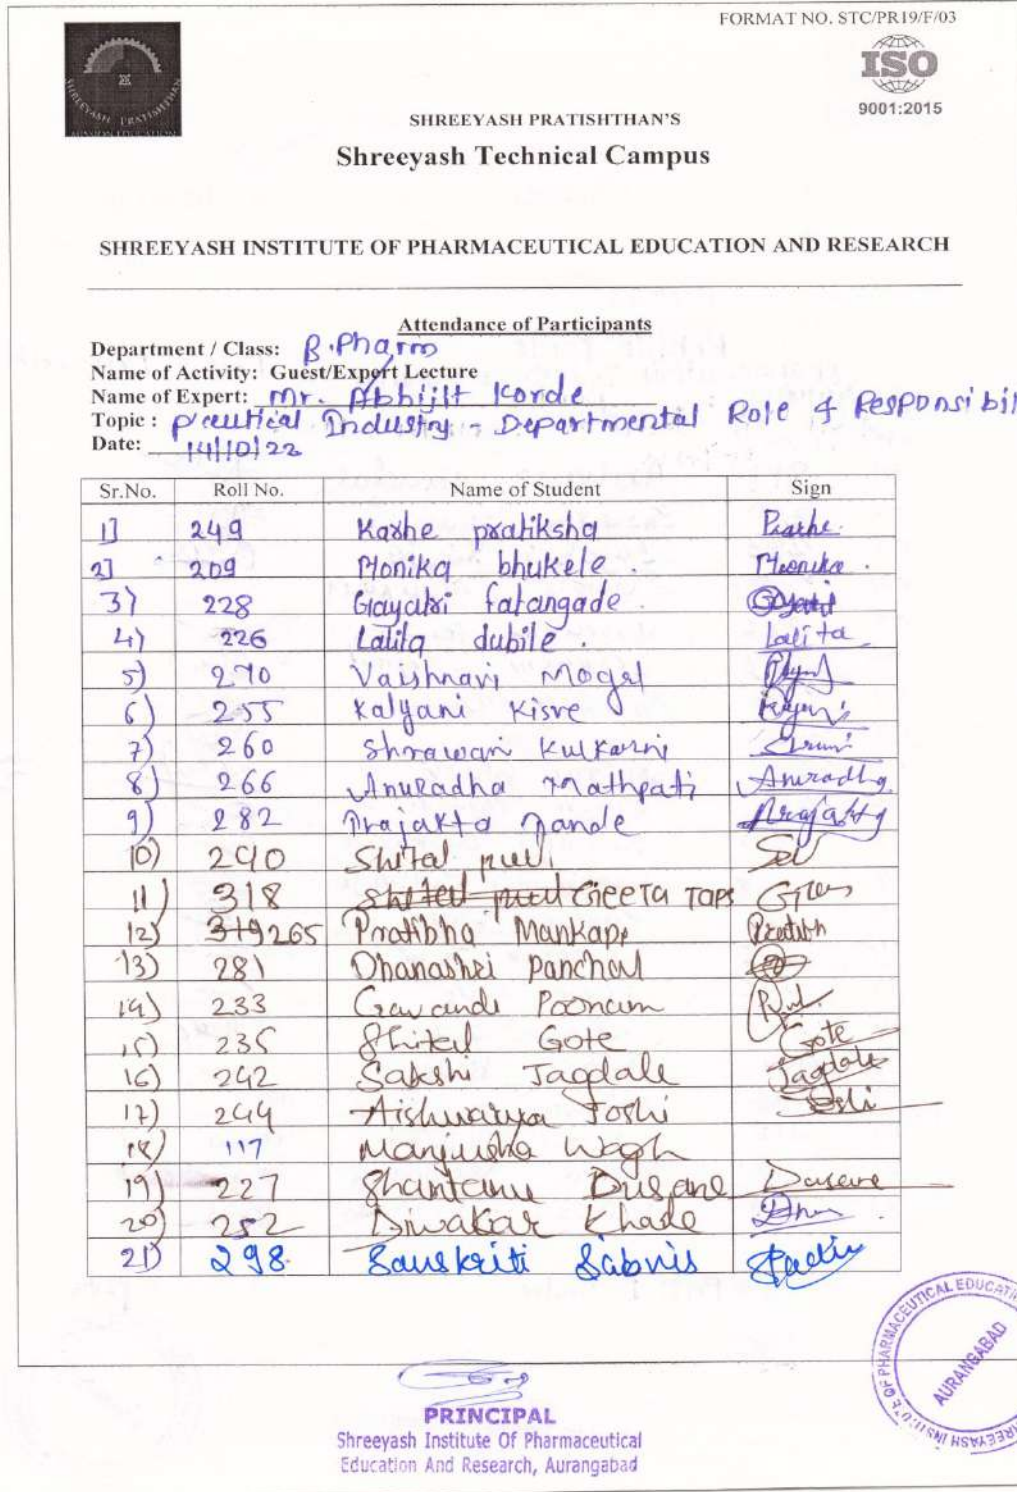 FORMAT NO. STC/PR19/F/03
SHREEYASH PRATISHTHAN
MISSION EDUCATION
ISO
9001:2015
SHREEYASH PRATISHTHAN'S
Shreeyash Technical Campus
SHREEYASH INSTITUTE OF PHARMACEUTICAL EDUCATION AND RESEARCH
Attendance of Participants
Department / Class: B.Pharm
Name of Activity: Guest/Expert Lecture
Name of Expert: Mr. Abhijit Korde
Topic : pceutical Industry - Departmental Role & Responsibil
Date: 14/10/22
Sr.No. Roll No. Name of Student Sign
1] 249 Karhe pratiksha
2] 209 Monika bhukele. Monika.
3) 228 Gayatri fatangade.
4) 226 Lalita dubile. Lalita
5) 270 Vaishnavi Mogal
6) 255 Kalyani Kisve
7) 260 Shrawani Kulkarni
8) 266 Anuradha Mathpati Anuradha
9) 282 Prajakta Nande Prajakta
10) 290 Shital puri
11) 318 Shital puri Geeta Tape
12) 319 265 Pratibha Mankape
13) 281 Dhanashri Panchal
14) 233 Gavande Poonam
15) 235 Shital Gote Gote
16) 242 Sakshi Jagdale Jagdale
17) 244 Aishwarya Joshi Joshi
18) 117 Manjusha Wagh
19) 227 Shantanu Dusane Dusane
20) 252 Diwakar Khade
21) 298 Sanskriti Sabnis
PRINCIPAL
Shreeyash Institute Of Pharmaceutical
Education And Research, Aurangabad
AURANGABAD